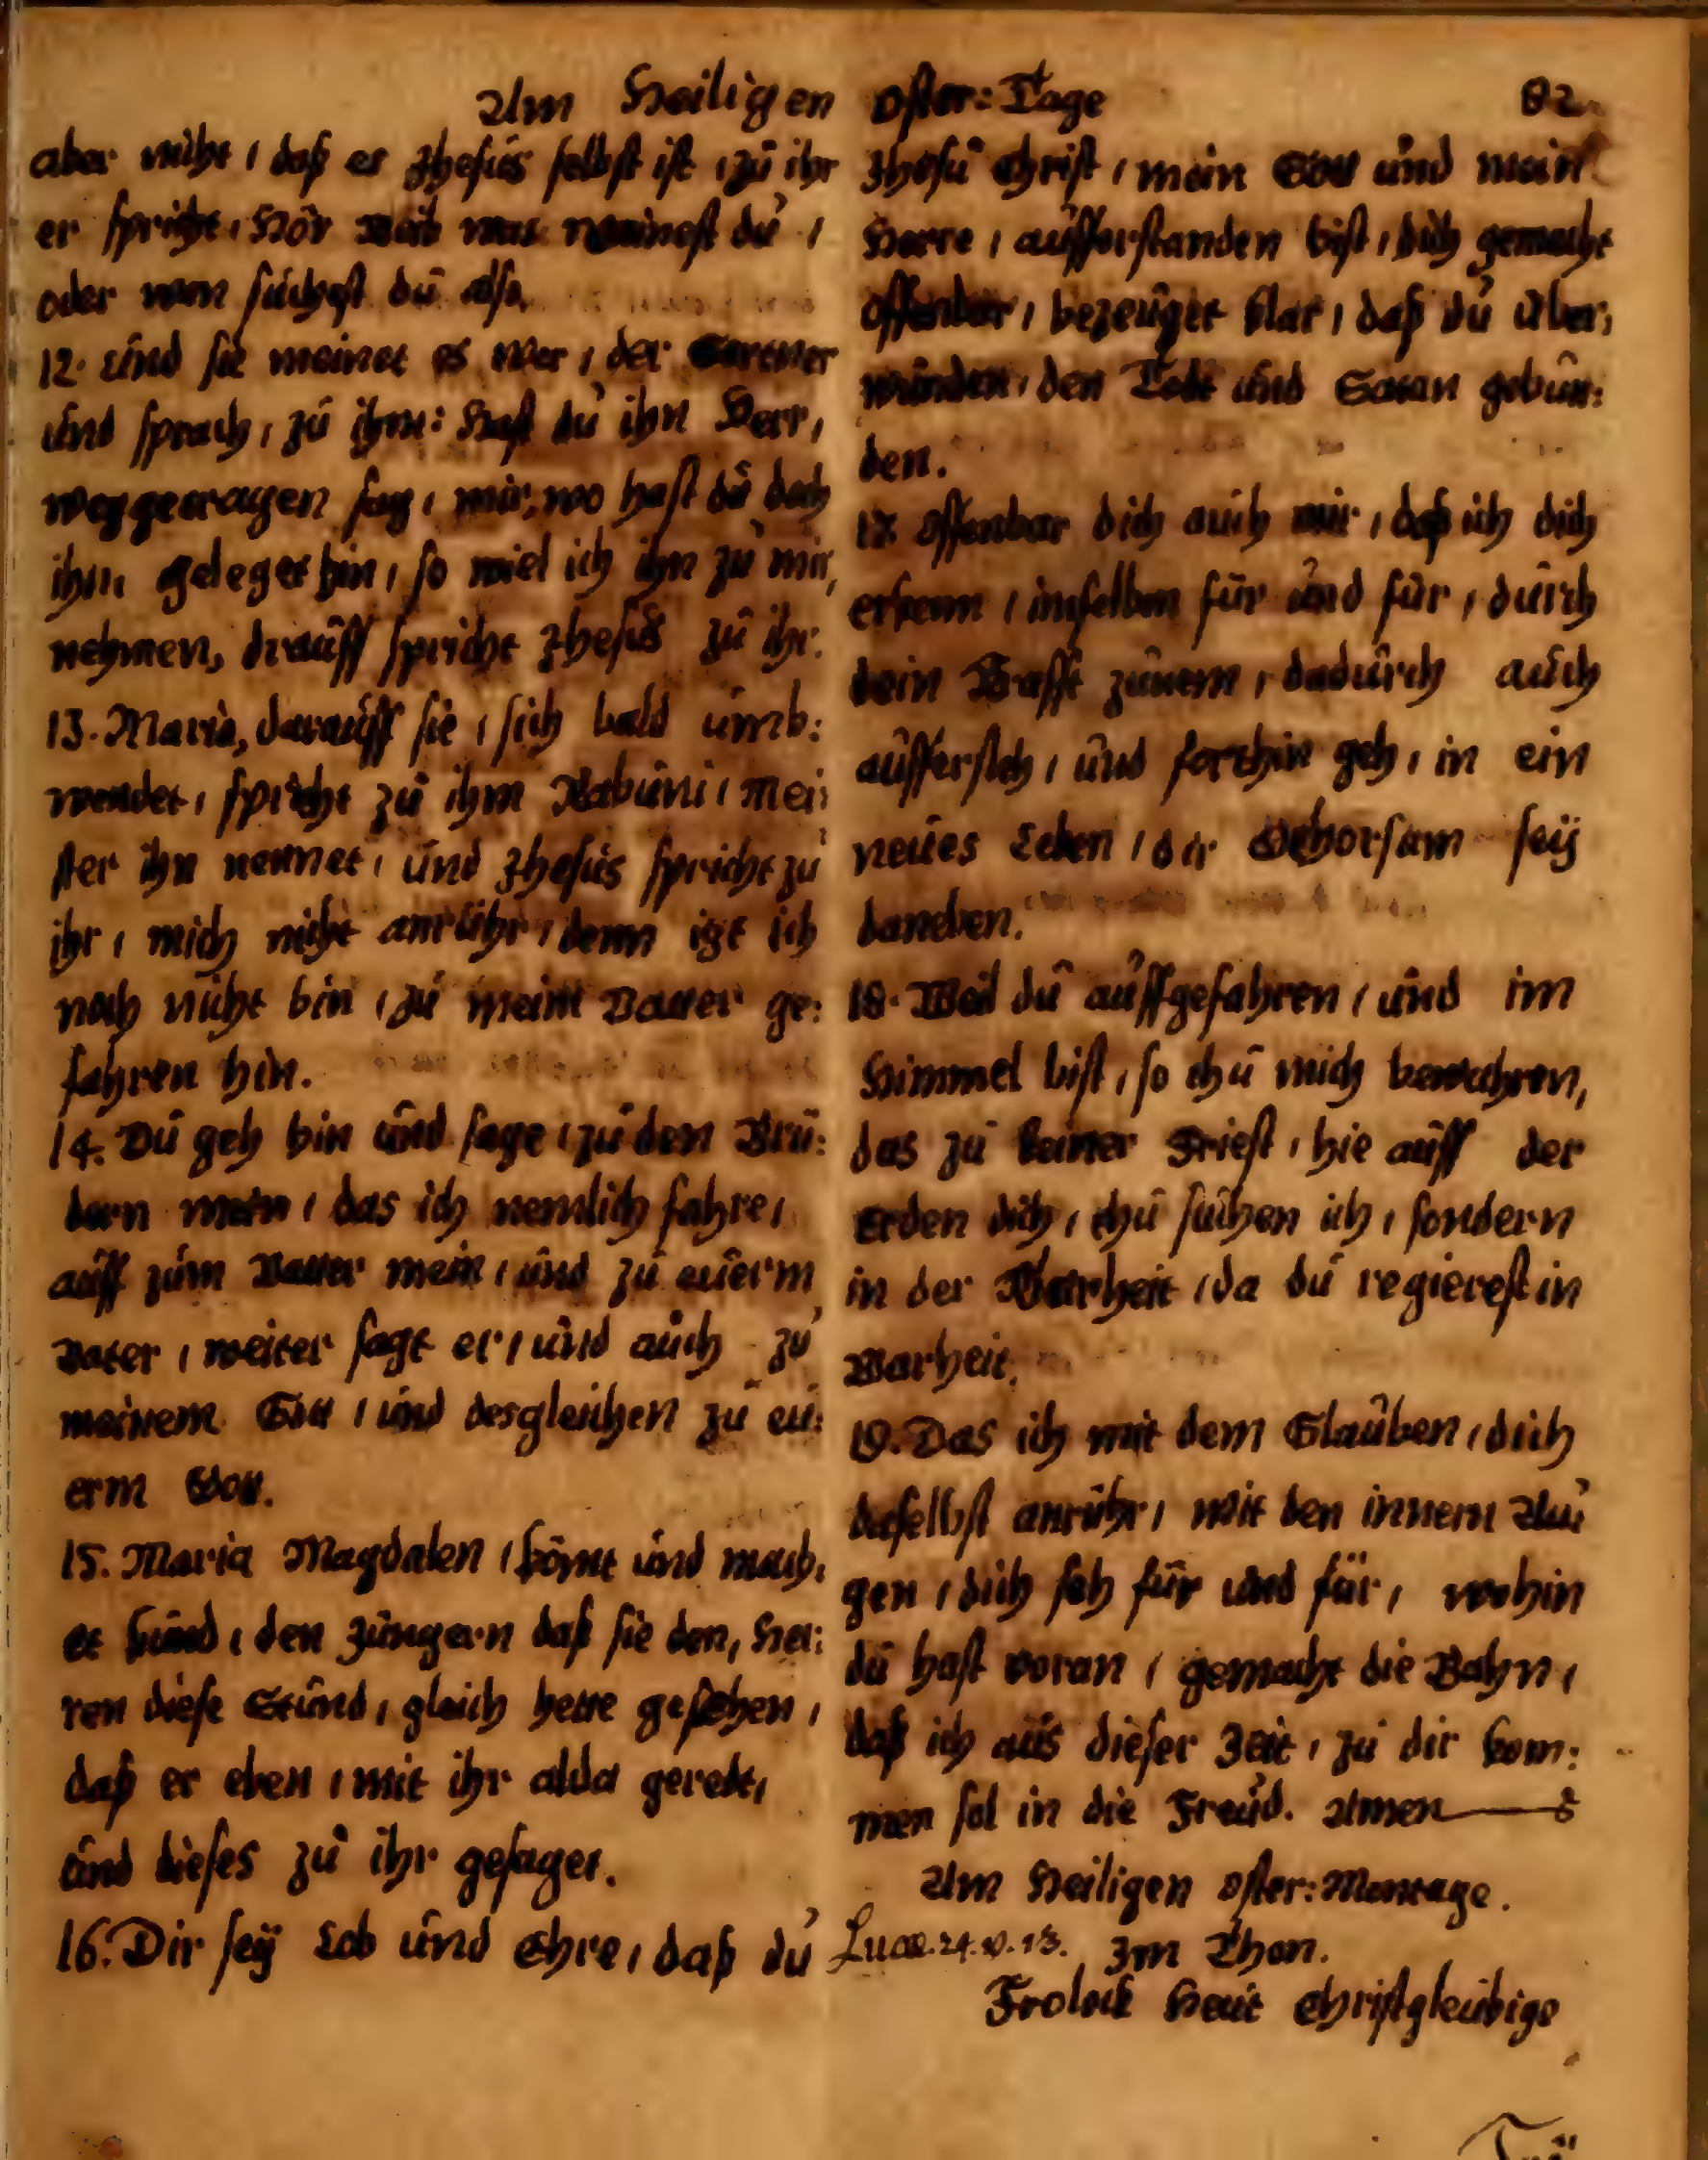 Am Heiligen Oster: Tage 82.
aber nicht / daß er Jhesus selbst ist / zu ihr
er spricht / Hör Weib was weinest du /
oder wen suchest du also.
12. Und sie meinet es wer / der Gartner
und sprach / zu ihm: Hast du ihn Herr,
weggetragen sag / mir, wo hast du doch
ihn geleget hin / so wiel ich ihn zu mir,
nehmen, drauff spricht Jhesus zu ihr:
13. Maria, darauff sie / sich bald umb:
wendet / spricht zu ihm Rabuni / Mei:
ster ihn nennet / und Jhesus spricht zu
ihr / mich nicht anrühr / denn izt ich
noch nicht bin / zu meim Vatter ge:
fahren hin.
14. Du geh hin und sage / zu den Brü:
dern mein / das ich nemlich fahre /
auff zum Vatter mein / und zu euerm
Vater / weiter sagt er / und auch zu
meinem Gott / und desgleichen zu eu:
erm Gott.
15. Maria Magdalen / kömt und mach:
et kund / den Jüngern daß sie den, Her:
ren diese Stund / gleich hette gesehen /
daß er eben / mit ihr alda geredt,
und dieses zu ihr gesaget.
16. Dir seÿ Lob und Ehre / daß du
Jhesu Christ / mein Gott und mein
Herre / aufferstanden bist / dich gemacht
offenbar / bezeuget klar / daß du uber:
wunden / den Todt und Satan gebun:
den.
17. Offenbar dich auch mir / daß ich dich
erkenn / imselben für und für / durch
dein Krafft zunem / dadurch auch
auffersteh / und forthin geh / in ein
neües Leben / dir Gehorsam seÿ
daneben.
18. Weil du auffgefahren / und im
Himmel bist / so thu mich bewahren,
das zu keiner Friest / hie auff der
Erden dich / thu suchen ich / sondern
in der Klarheit / da du regierest in
Warheit.
19. Das ich mit dem Glauben / dich
daselbst anrühr / mit den innern Au:
gen / dich seh für und für / wohin
du hast voran / gemacht die Bahn /
daß ich aus dieser Zeit / zu dir kom:
men sol in die Freud. Amen
Am Heiligen Oster: Montage.
Lucæ. 24. v. 13. Im Thon.
Frolock heut Christgleubige